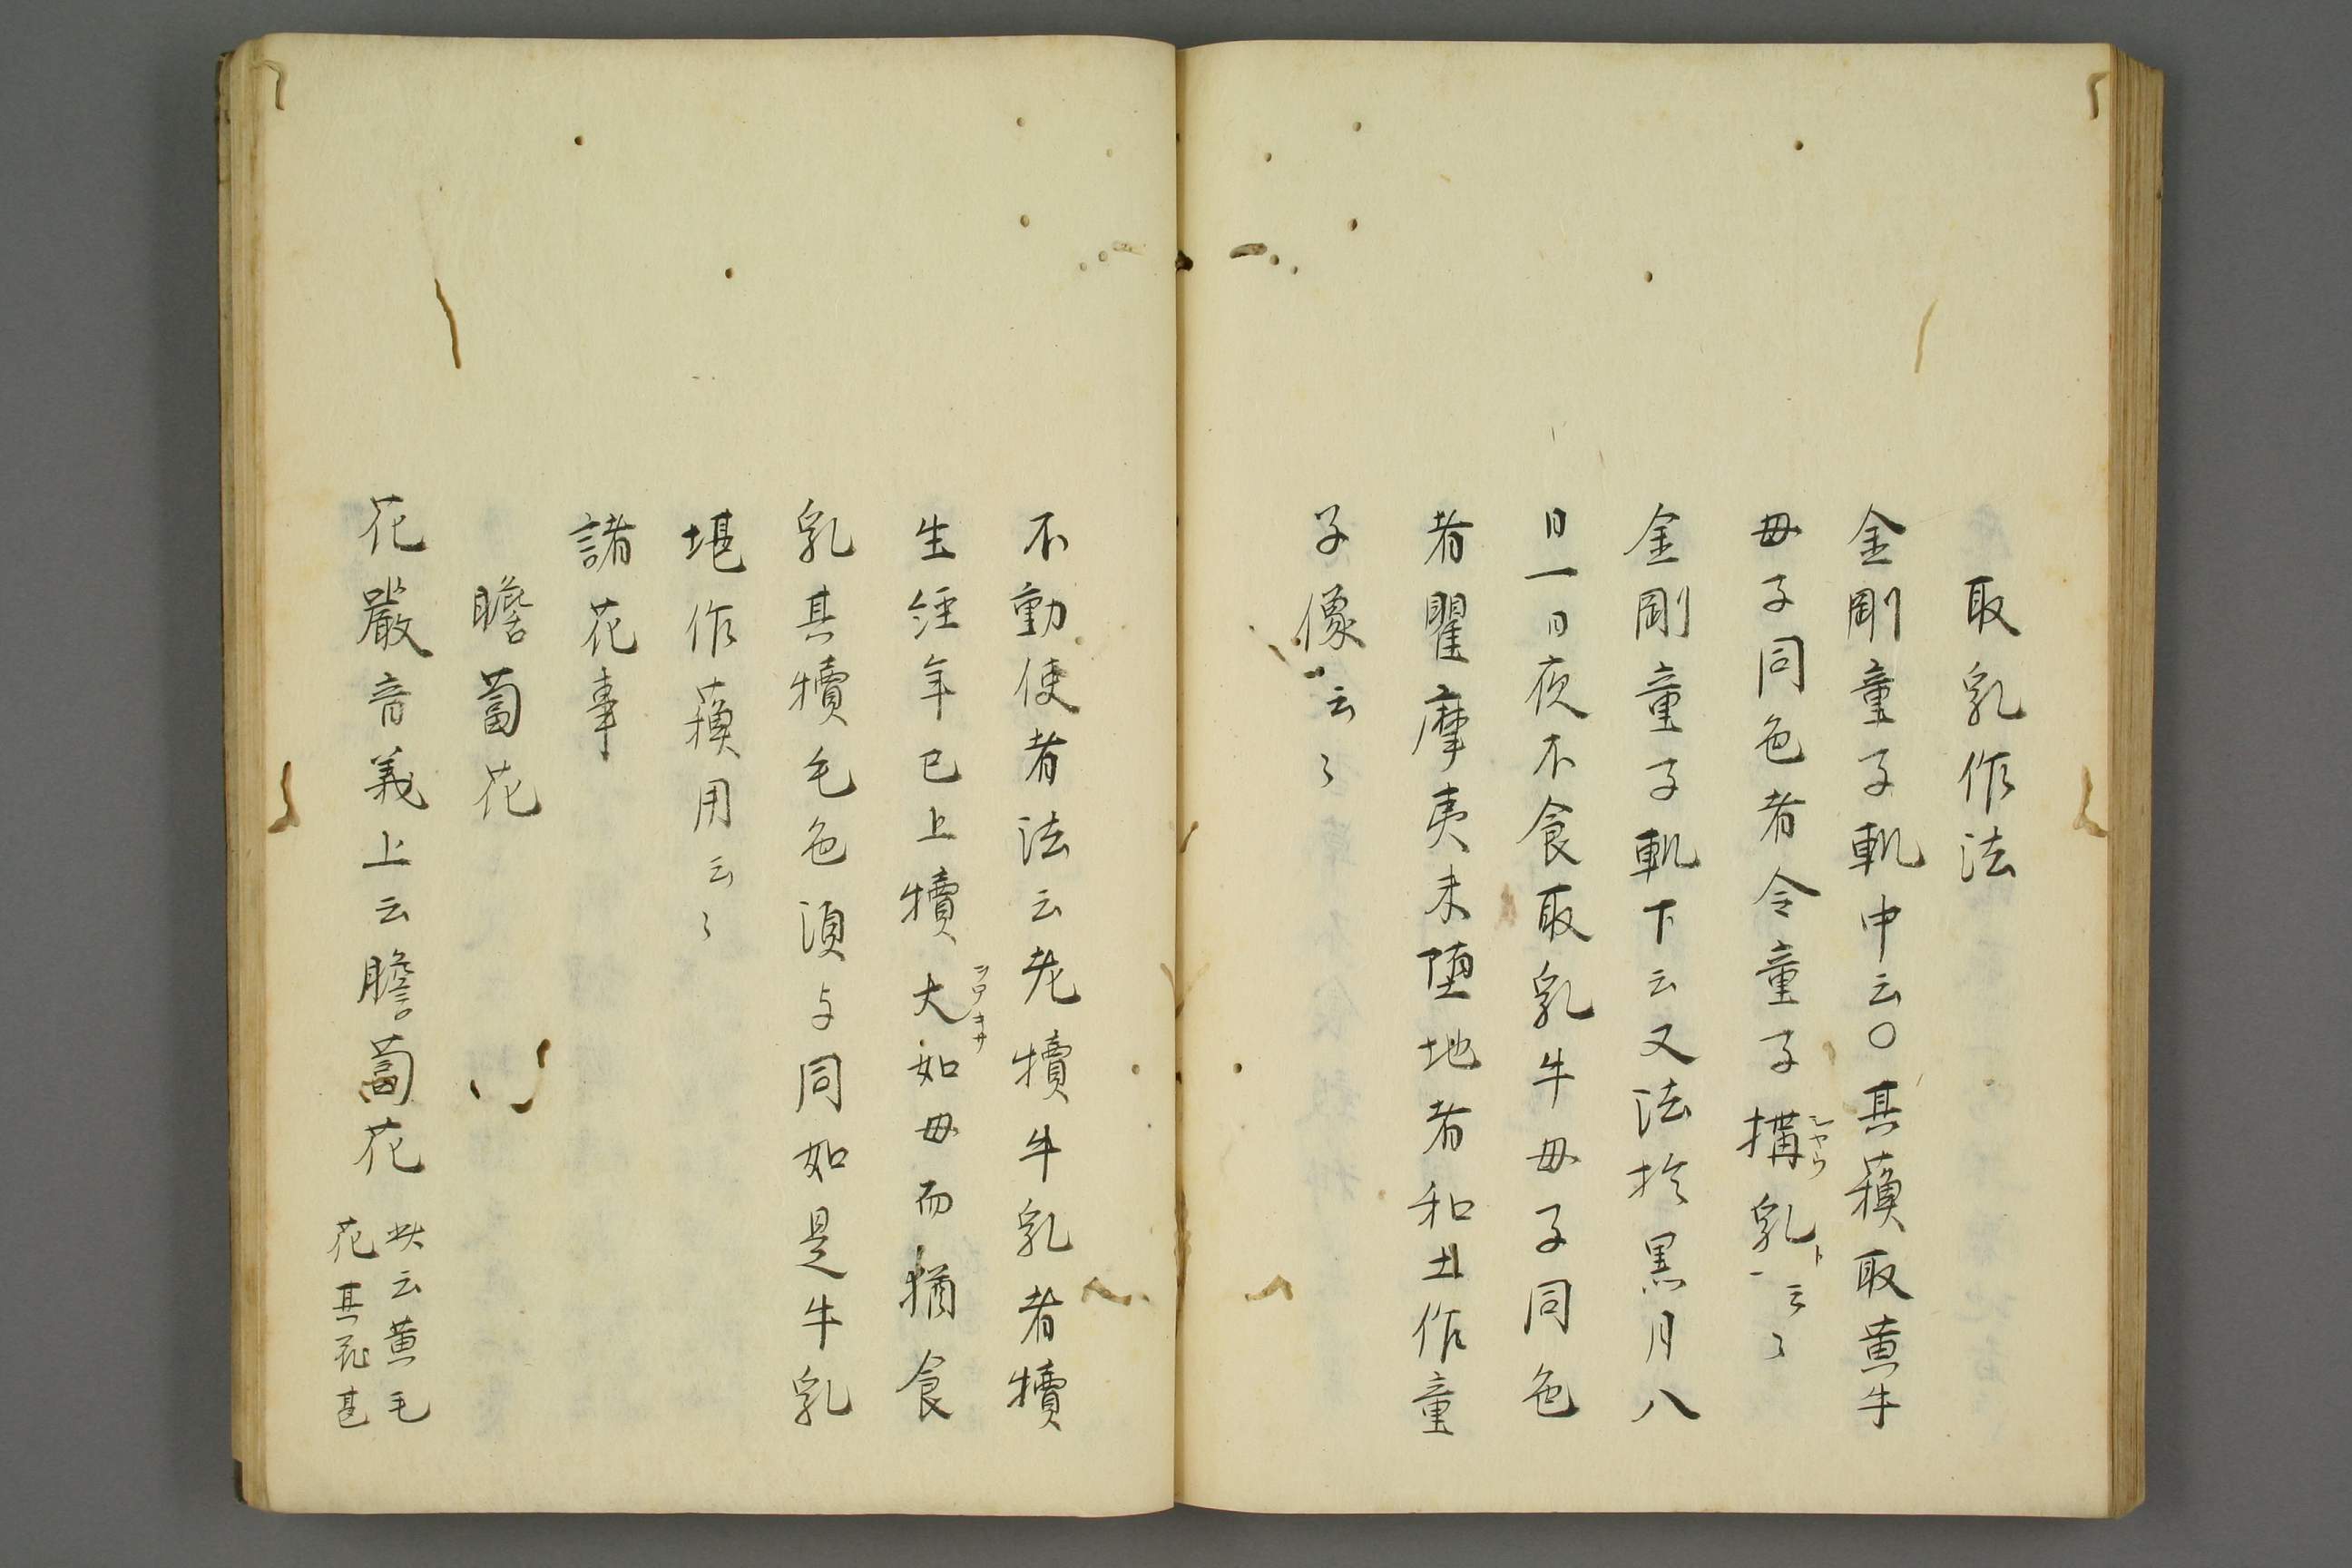 取乳作法
金剛童子軌中云〇其蘓取黄牛
母子同色者令童子搆乳云〻
シヤウ
ト
金剛童子軌下云又法於黒月八
日一日夜不食取乳牛母子同色
者瞿摩夷未堕地者和土作童
子像云〻
不動使者法云老犢牛乳者犢
生經年已上犢大如母而猶食
乳其犢毛色須与同如是牛乳
堪作蘓用云〻
諸花事
瞻蔔花
花嚴音義上云瞻蔔花
此云黄毛
花其花甚